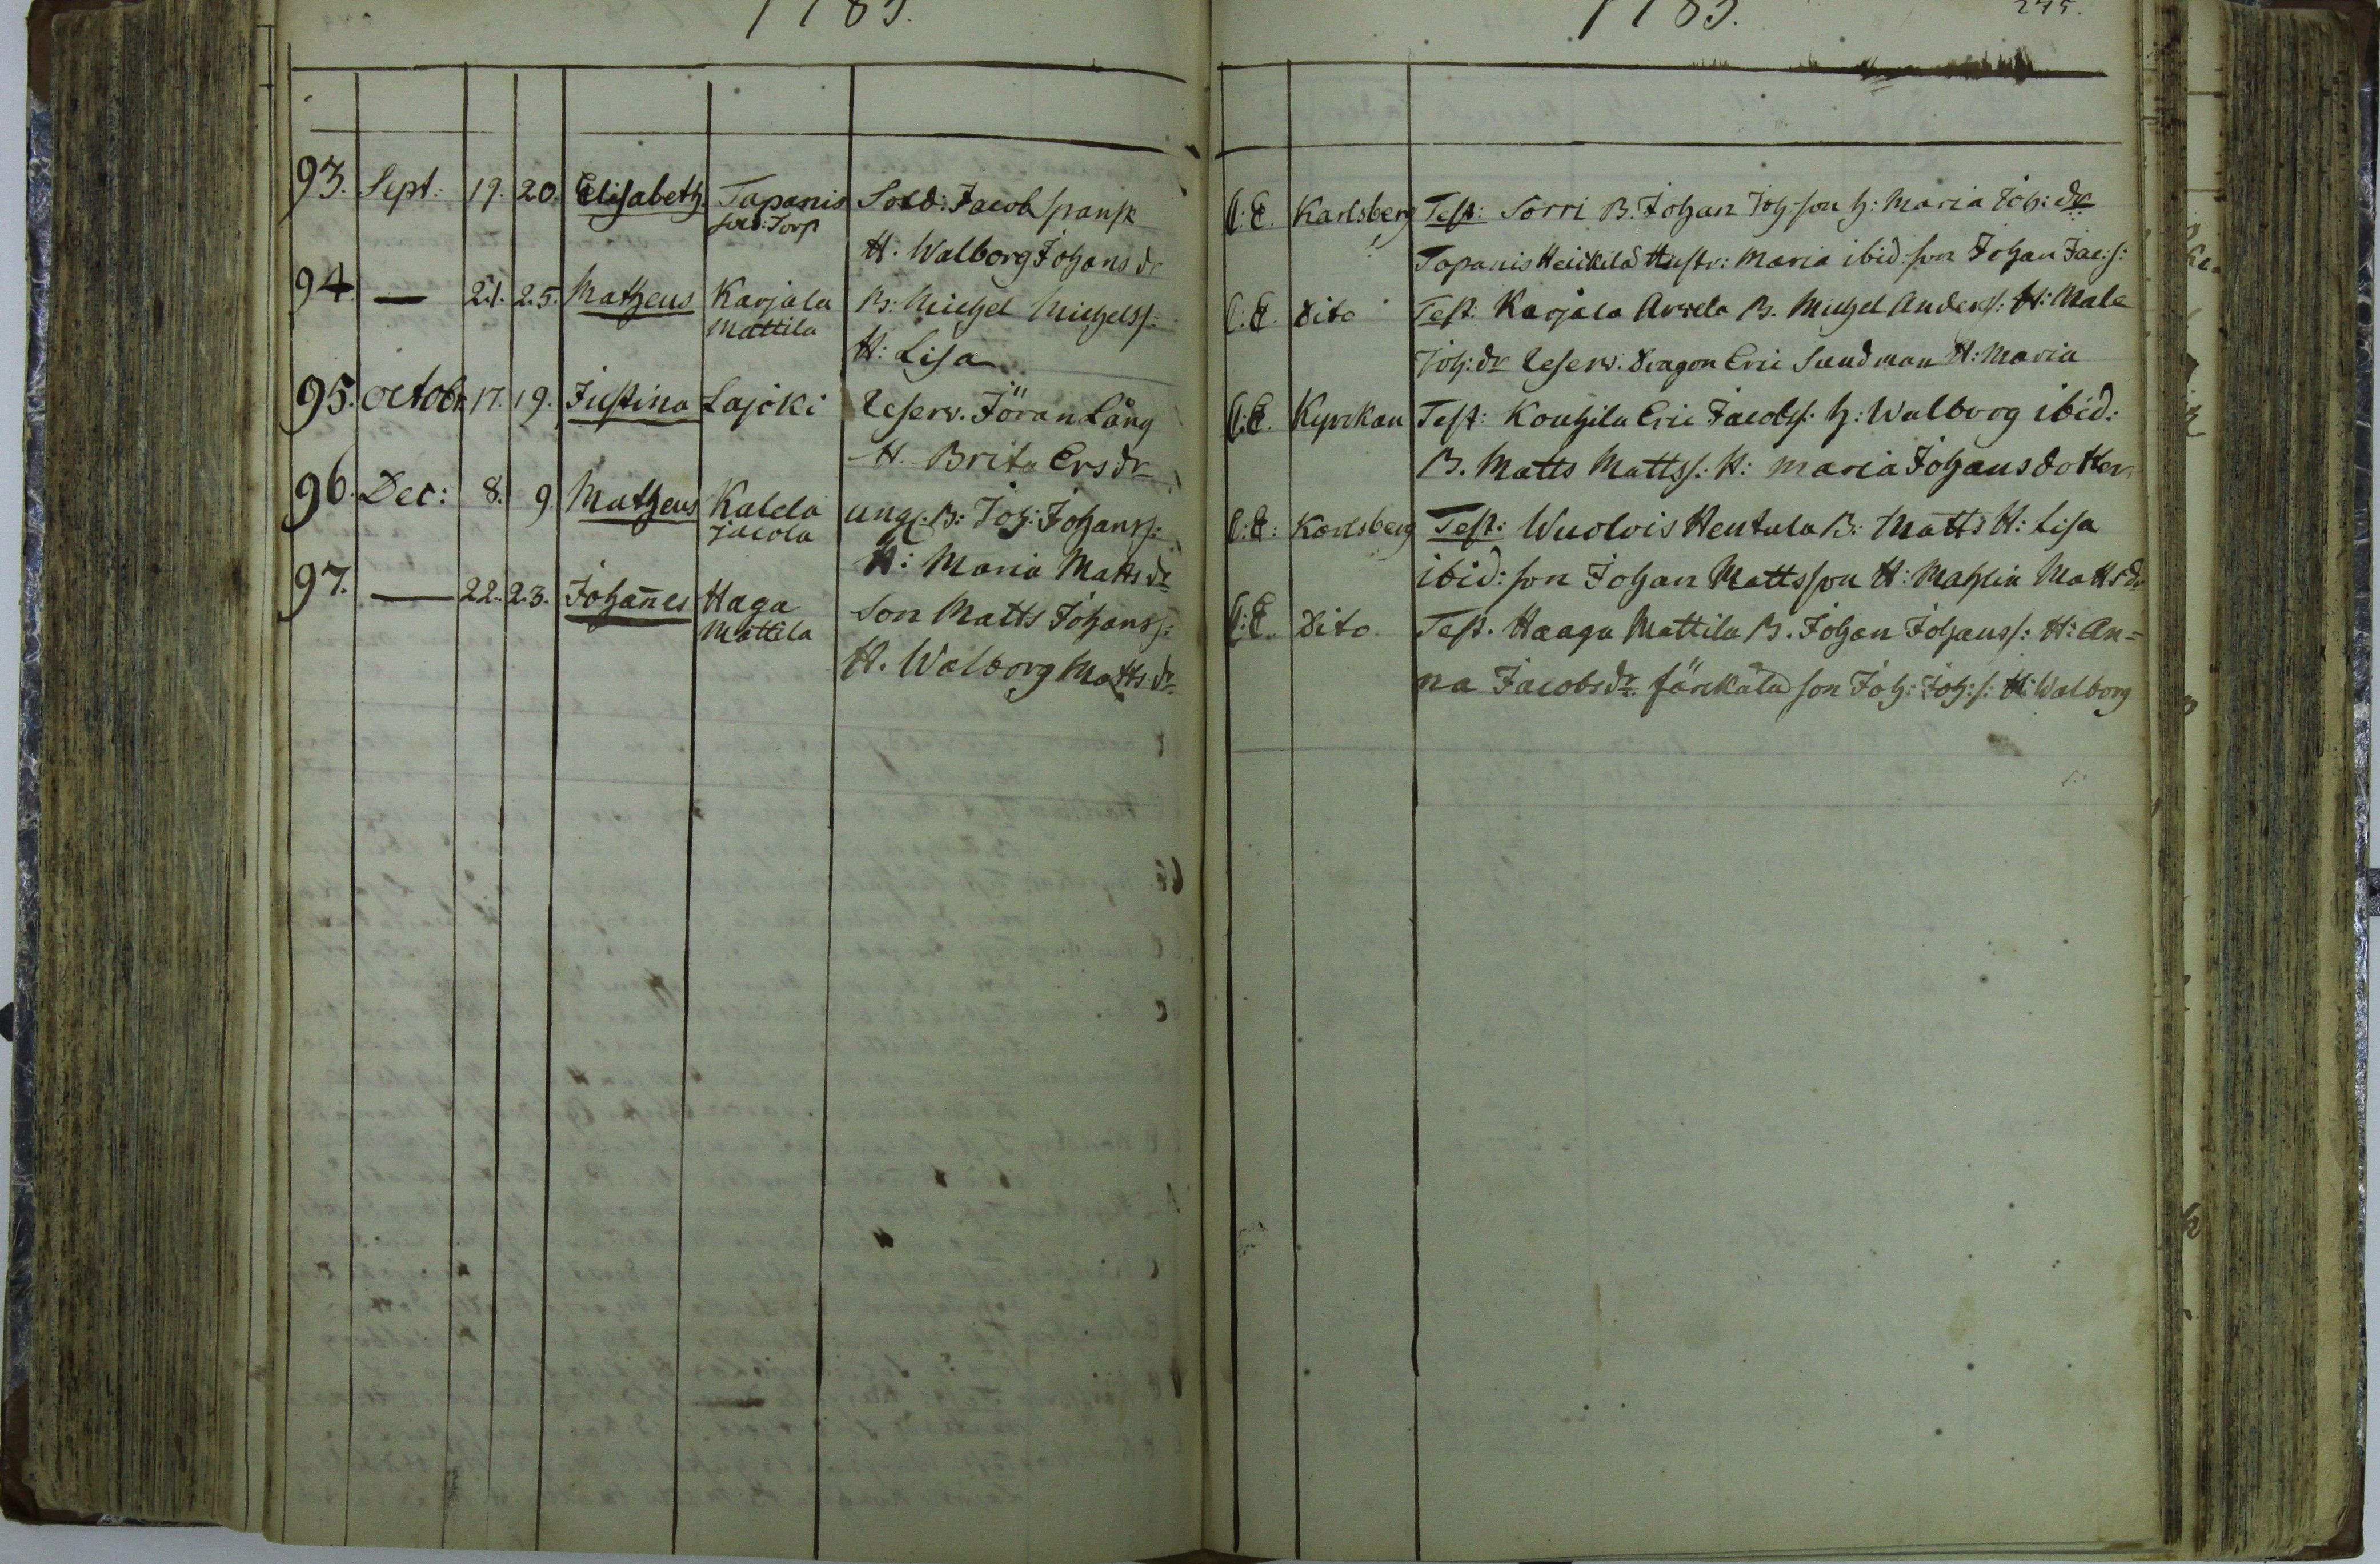 1785.
93. Sept: 19. 20. Elisabeth. Tapanis Sold: Jacob Spansk
sold: Torp
H. Walborg Johans dr
94. — 21. 25. Matheus Karjala B: Michel Michelss:
Mattila
H: Lisa
95. Octobr. 17. 19. Justina Lajoki Reserv. Jöran Lång
H. Brita Ers dr
96. Dec: 8. 9. Matheus Kalela ungl: B: Joh: Johanss:
Jacola
H: Maria Matts dr
97. — 22. 23. Johañes Haga Son Matts Johanss:
Mattila
H. Walborg Matts dr
1785. 245.
C: E. Karlsberg Test: Sorri B. Johan Joh:son h: Maria Joh: dr
Tapanis Heickilä Hustr: Maria ibid: son Johan Jac:s:
C: E. Dito Test. Karjala Arvela B. Michel Anders: H: Mala
Joh: dr Reserv. Dragon Eric Sundman H: Maria
C: E. Kyrckan Test: Kouhila Eric Jacobs: h: Walborg ibid:
B. Matts Mattss: H: Maria Johans dotter
C: E: Karlsberg Test: Wuolvis Hentula B: Matts H: Lisa
ibid: son Johan Mattsson H: Mahlin Matts dr
C: E. Dito Test. Haaga Mattila B. Johan Johanss: H: An=
na Jacobs dr Järickälä son Joh: Joh:s: H: Walborg